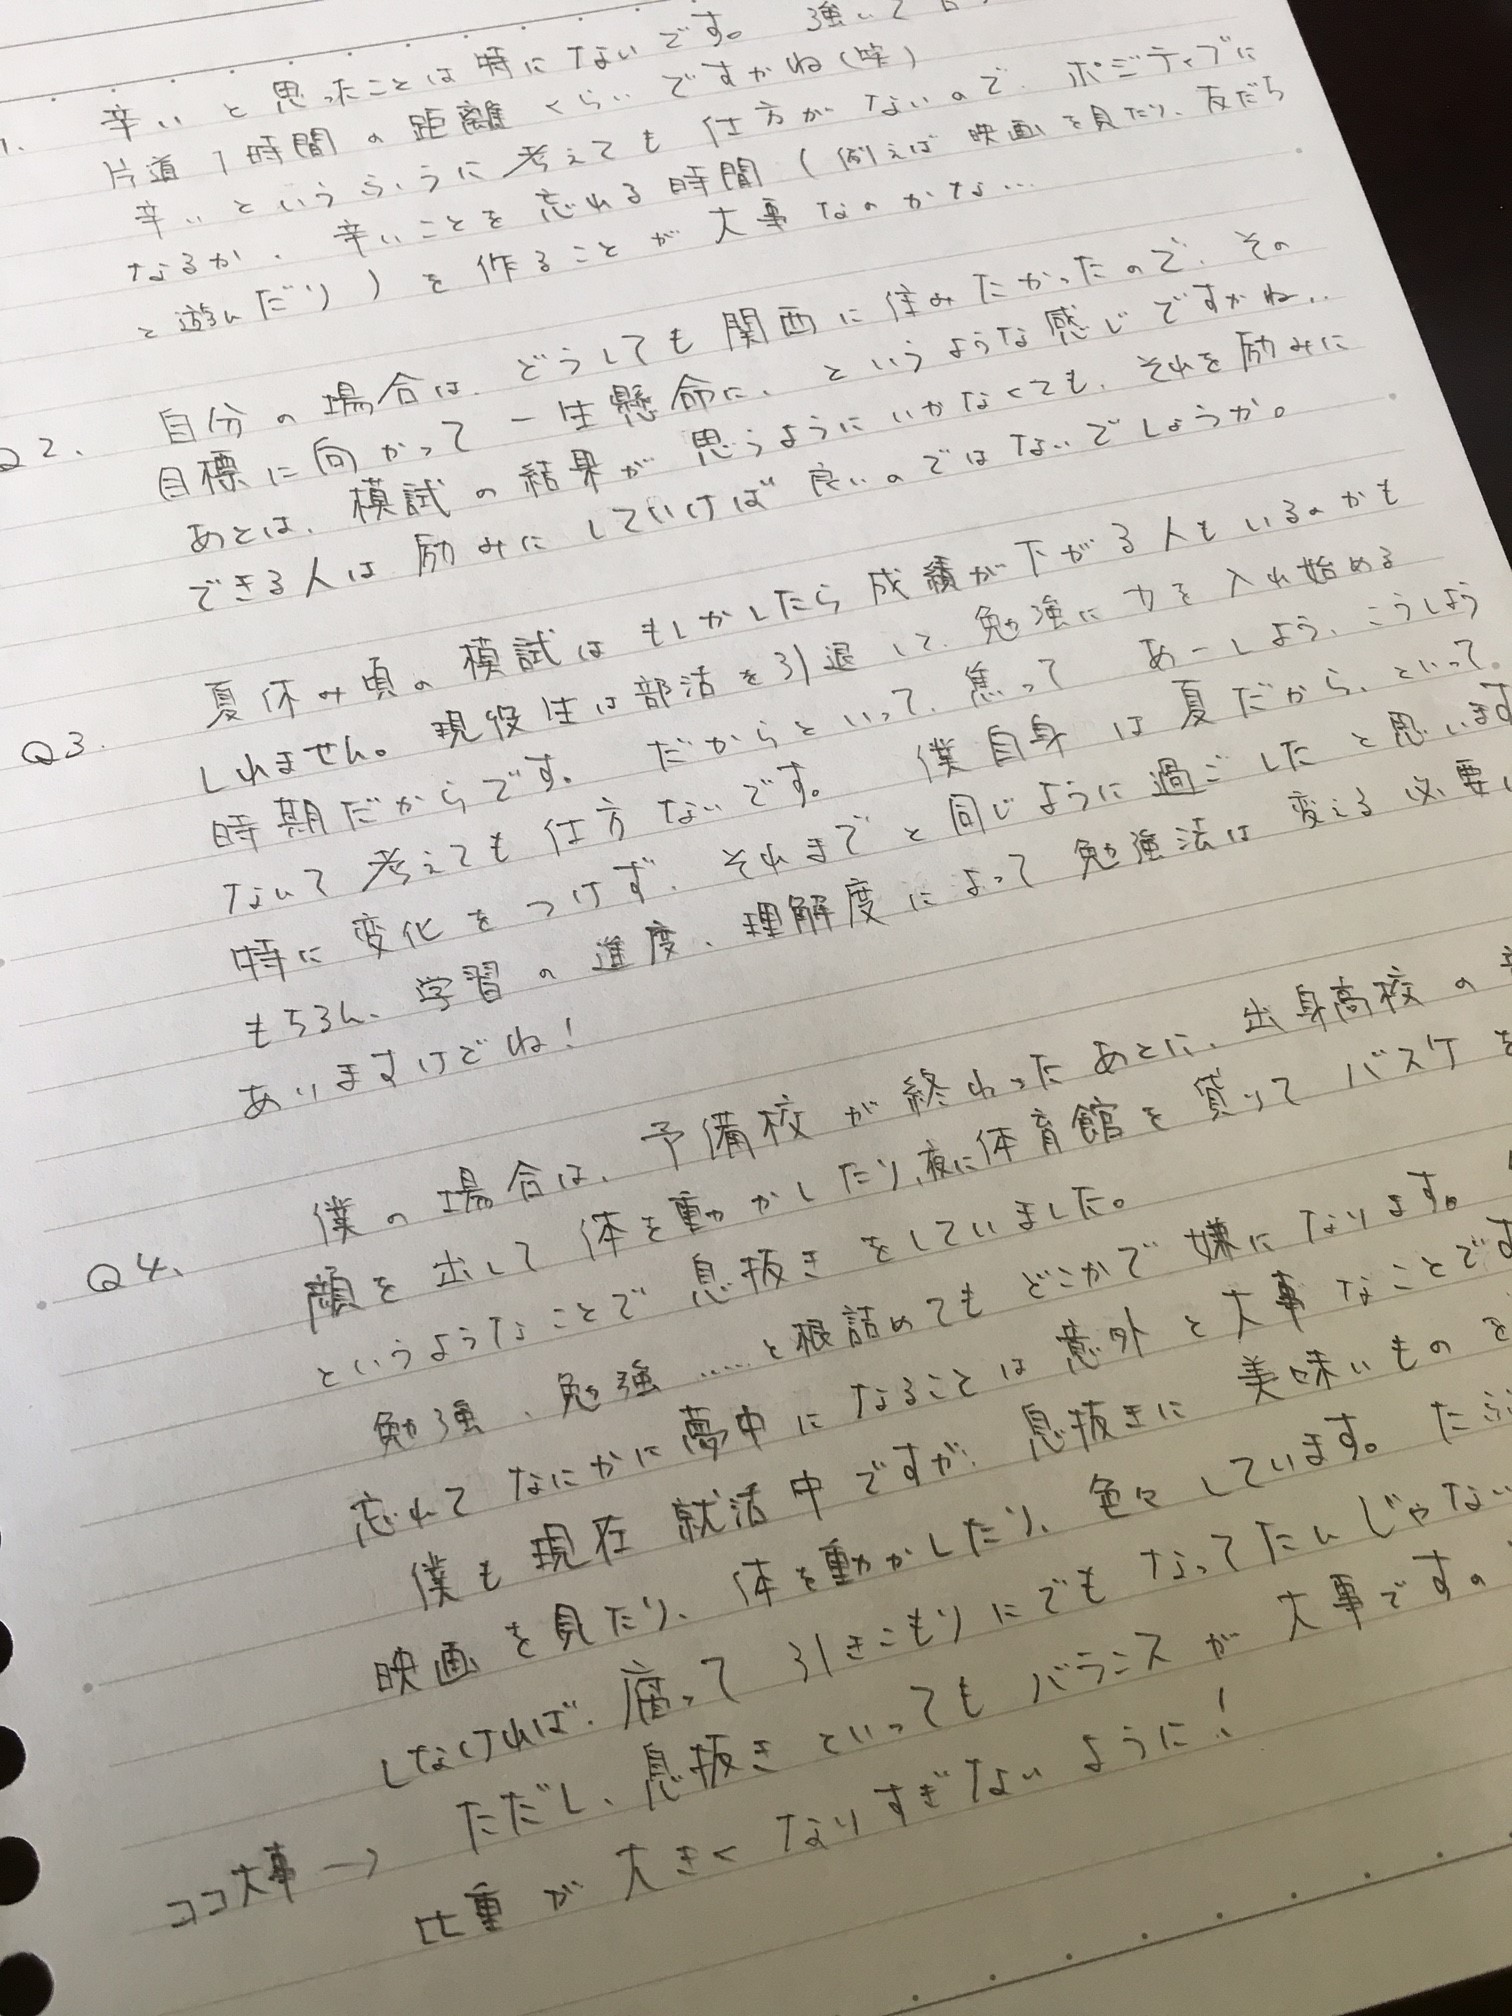 1. 辛いと思ったことは特にないです。強いて
片道1時間の距離くらいですかね(笑)
辛いというふうに考えても仕方がないので、ポジティブに
なるか、辛いことを忘れる時間(例えば映画を見たり、友だち
と遊んだり)を作ることが大事なのかな…
Q2. 自分の場合は、どうしても関西に住みたかったので、その
目標に向かって一生懸命に、というような感じですかね..
あとは、模試の結果が思うようにいかなくても、それを励みに
できる人は励みにしていけば良いのではないでしょうか。
Q3. 夏休み頃の模試はもしかしたら成績が下がる人もいるのかも
しれません。現役性は部活を引退して、勉強に力を入れ始める
時期だからです。だからといって、焦ってあーしよう、こうしよう
なんて考えても仕方ないです。僕自身は夏だから、といって、
特に変化をつけず、それまでと同じように過ごしたと思います
もちろん、学習の進度、理解度によって勉強法は変える必要
ありますけどね!
Q4. 僕の場合は、予備校が終わったあとに、出身高校の
顔を出して体を動かしたり、夜に体育館を貸りてバスケを
というようなことで息抜きをしていました。
勉強、勉強……と根詰めてもどこかで嫌になります。
忘れてなにかに夢中になることは意外と大事なことです
僕も現在就活中ですが、息抜きに美味いものを
映画を見たり、体を動かしたり、色々しています。
しなければ、腐って引きこもりにでもなってたんじゃない
ココ大事→ ただし、息抜きといってもバランスが大事です。
比重が大きくなりすぎないように!